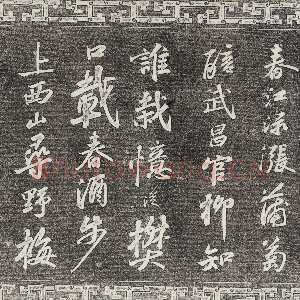 春江淥漲蒲萄
醅武昌官柳知
誰栽憶從樊
口載春酒步
上西山尋野梅